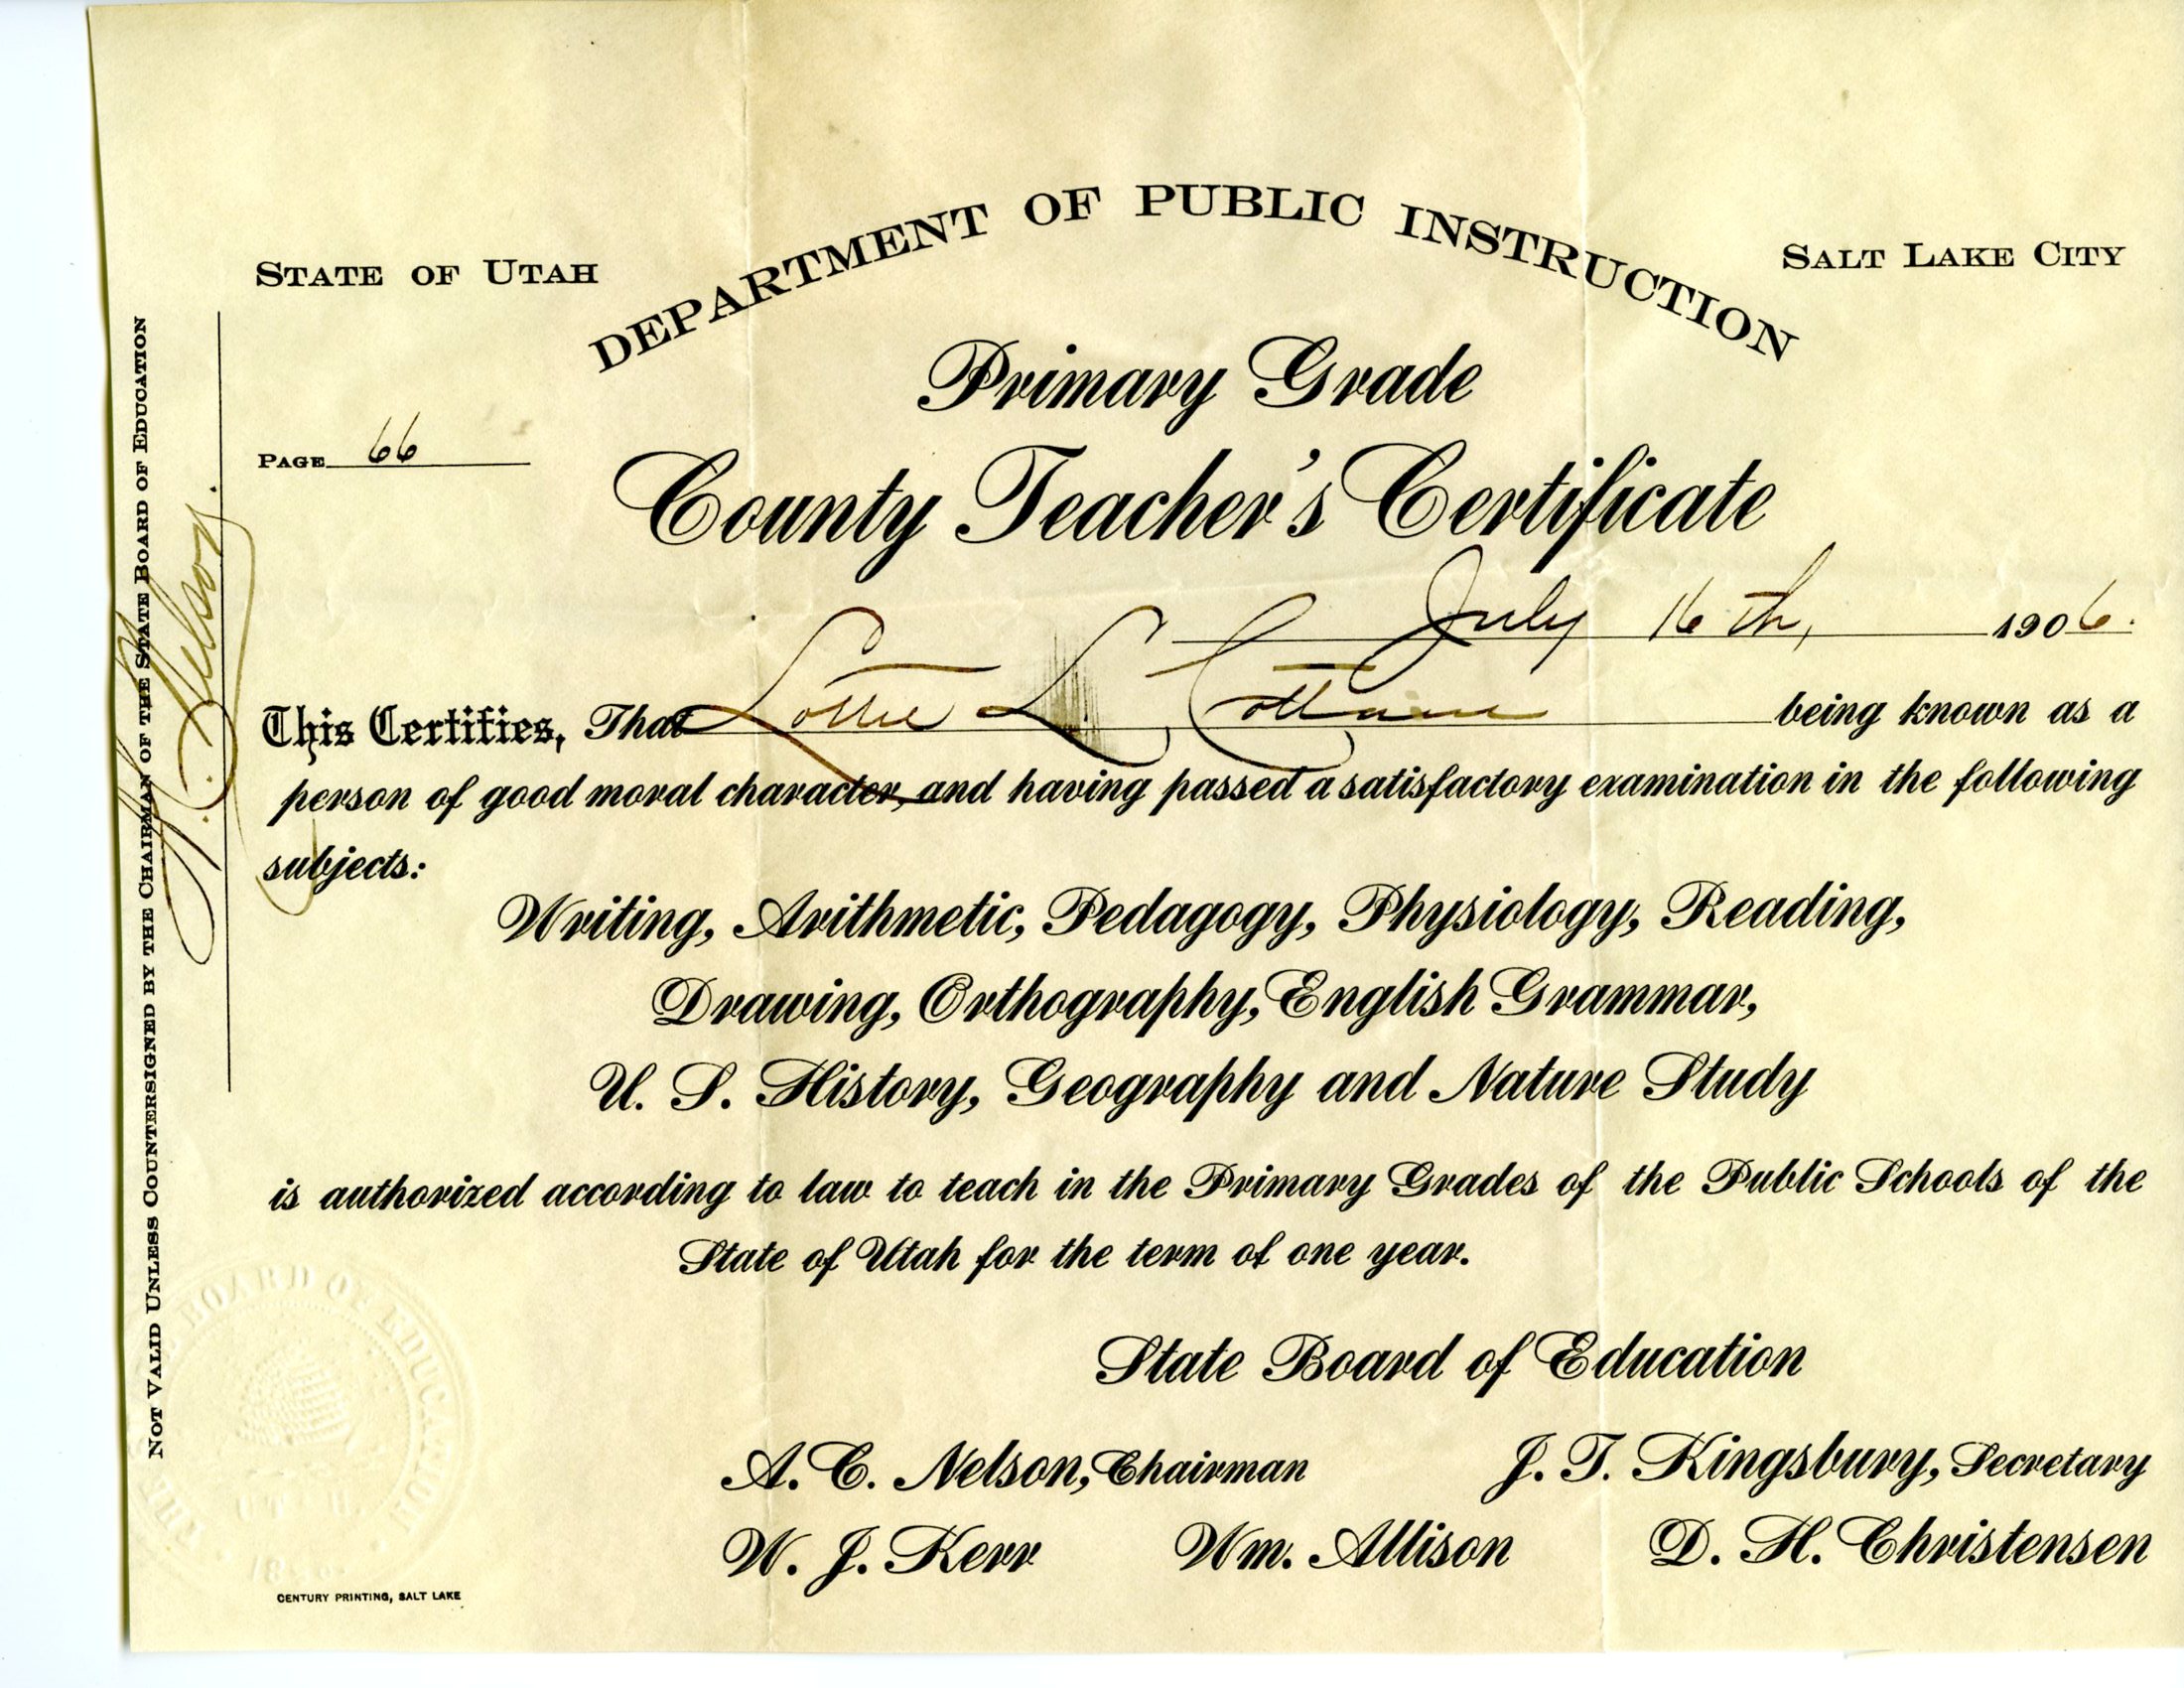 STATE OF UTAH
DEPARTMENT OF PUBLIC INSTRUCTION
SALT LAKE CITY
Primary Grade
PAGE 66
County Teacher's Certificate
July 16th, 1906.
This Certifies, That Lottie L being known as a
person of good moral character, and having passed a satisfactory examination in the following
subjects:
Writing, Arithmetic, Pedagogy, Physiology, Reading,
Drawing, Orthography, English Grammar,
U. S. History, Geography and Nature Study
is authorized according to law to teach in the Primary Grades of the Public Schools of the
State of Utah for the term of one year.
State Board of Education
A. C. Nelson, Chairman
J. T. Kingsbury, Secretary
W. J. Kerr
Wm. Allison
D. H. Christensen
NOT VALID UNLESS COUNTERSIGNED BY THE CHAIRMAN OF THE STATE BOARD OF EDUCATION
A. C. Nelson.
THE BOARD OF EDUCATION
UTAH
CENTURY PRINTING, SALT LAKE